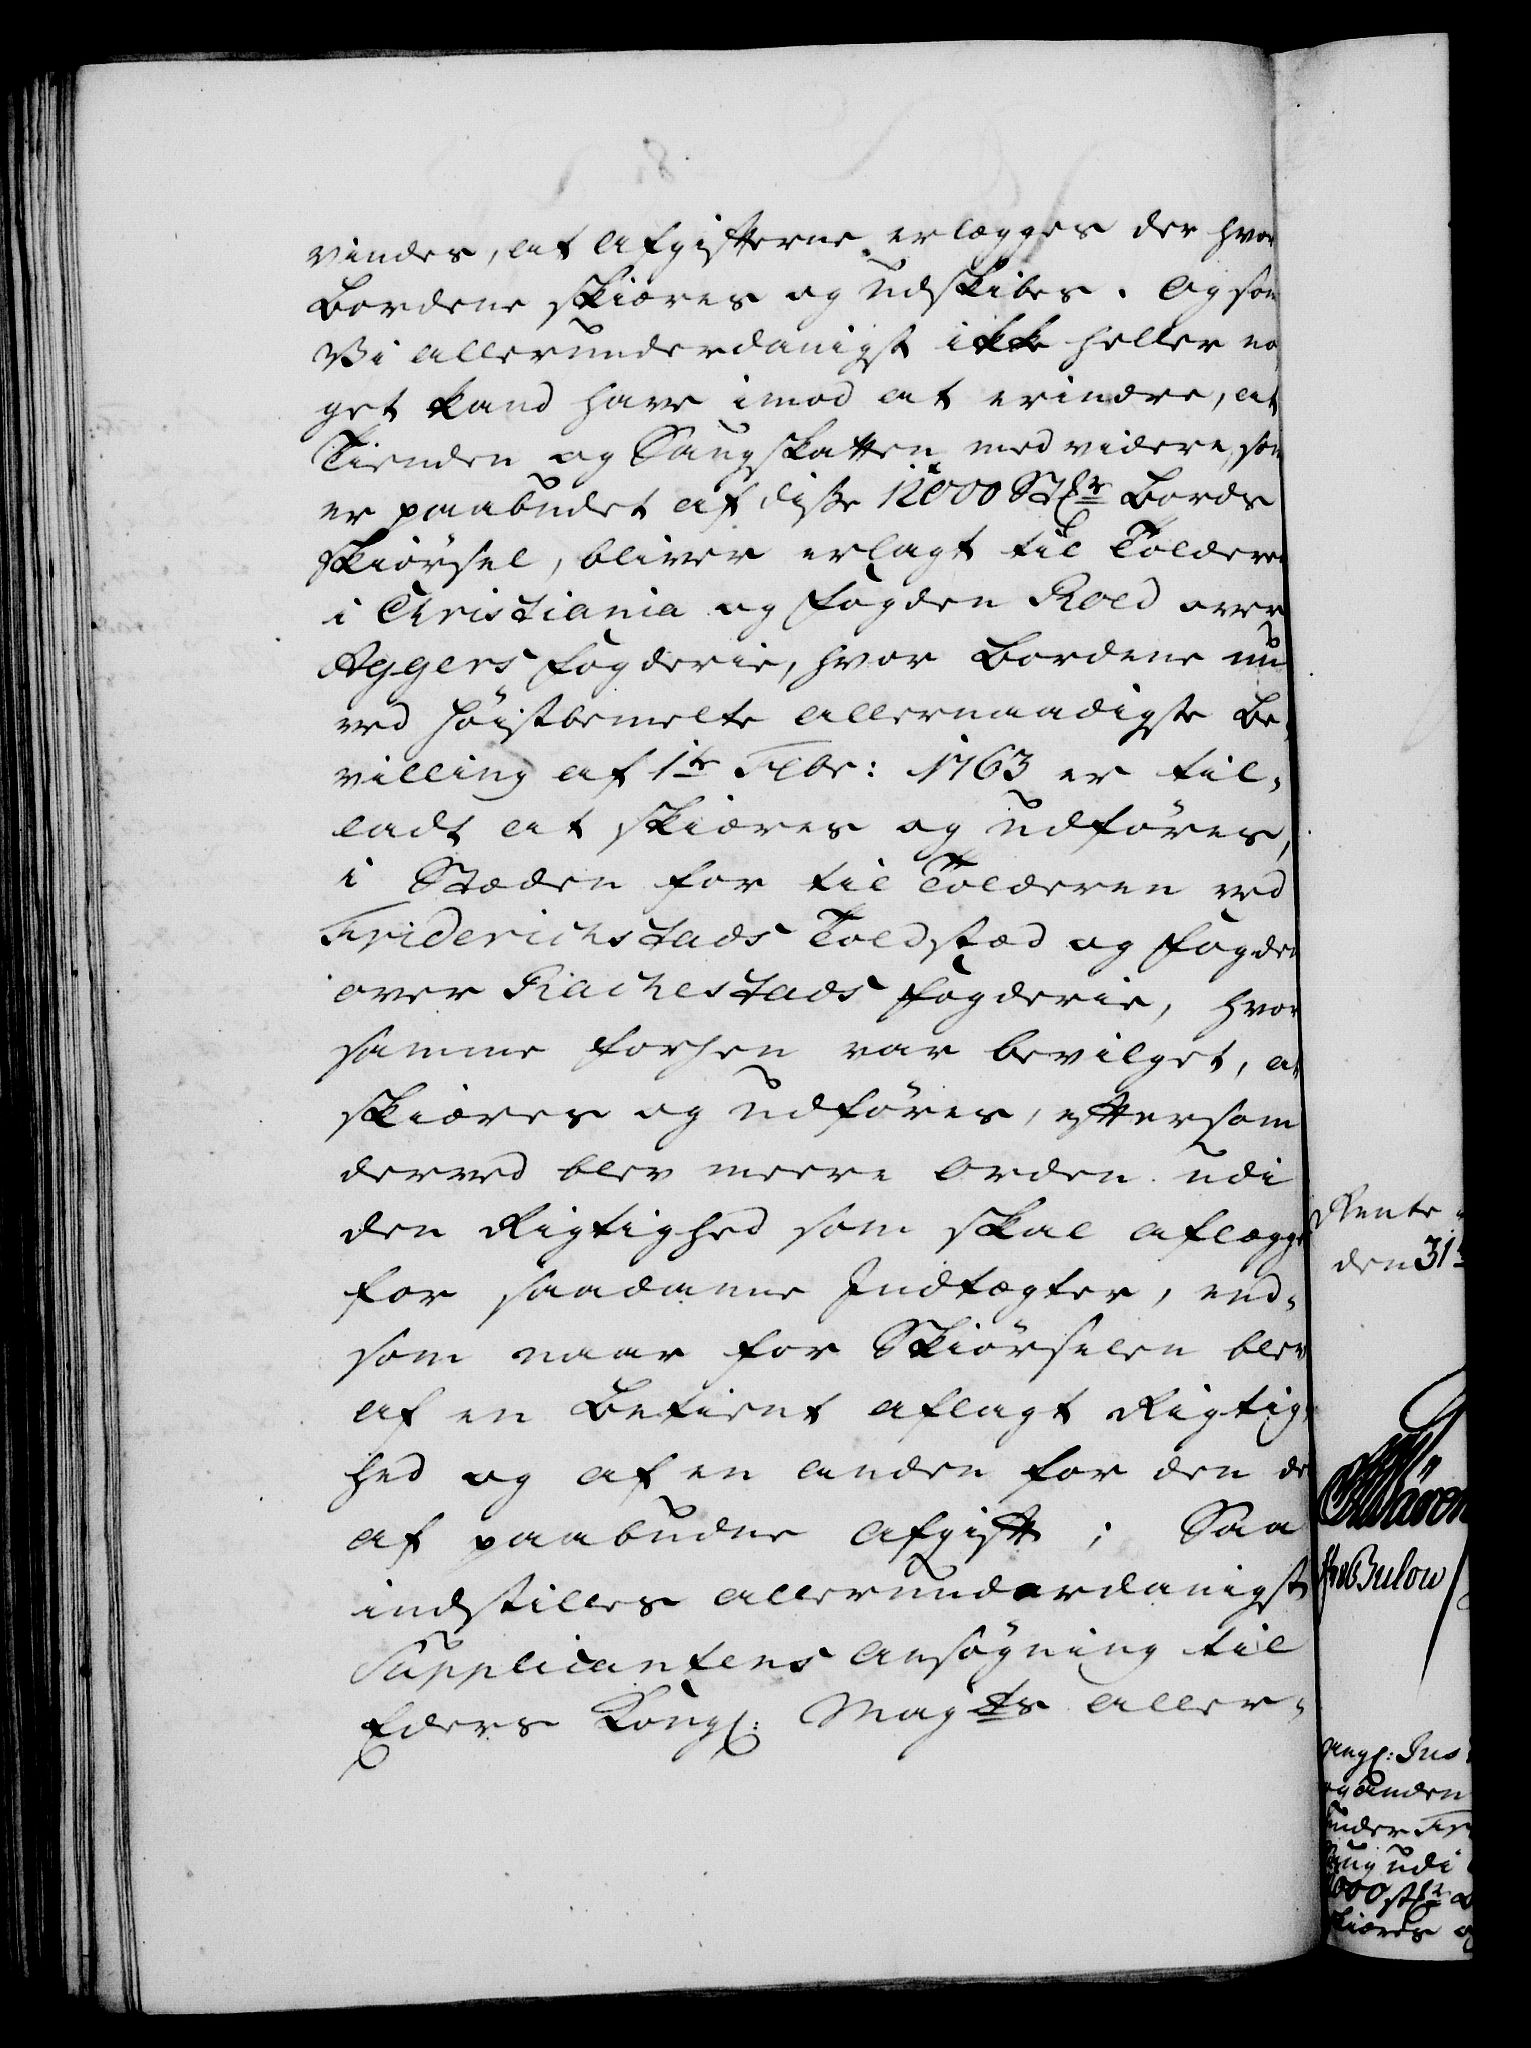 vindes, at Afgifterne erlægges der hvor
Bordene skiæres og udskibes. Og som
Vi allerunderdanigst ikke heller no,
get kand have imod at erindre, at
Tienden og Saugskatten med videre, som
er paabudet af disse 12000 Stkr Bords
Skiørsel, bliver erlagt til Tolderen
i Christiania og Fogden Roed over
Aggers Fogderie, hvor Bordene nu
ved høistbemelte allernaadigste Be,
villing af 1te Febr: 1763 er til,
ladt at skiæres og udføres,
i Stæden for til Tolderen ved
Friderichstads Toldsted og Fogden
over Rachestads Fogderie, hvor
samme forhen var bevilget, at
skiæres og udføres, eftersom
derved blev meere Orden udi
den Rigtighed som skal aflægges
for saadanne Indtægter, end,
som naar for Skiørselen blev
af en Betient aflagt Rigtig,
hed og af en anden for den der
af paabudne Afgift; Saa
indstilles allerunderdanigst
Supplicantens Ansøgning til
Eders Kongl: Mayts aller-
Rente
den 31
Bulow
ongl: Jus
og anden
under Fr
Saug udi
000 stkr
skiæres og